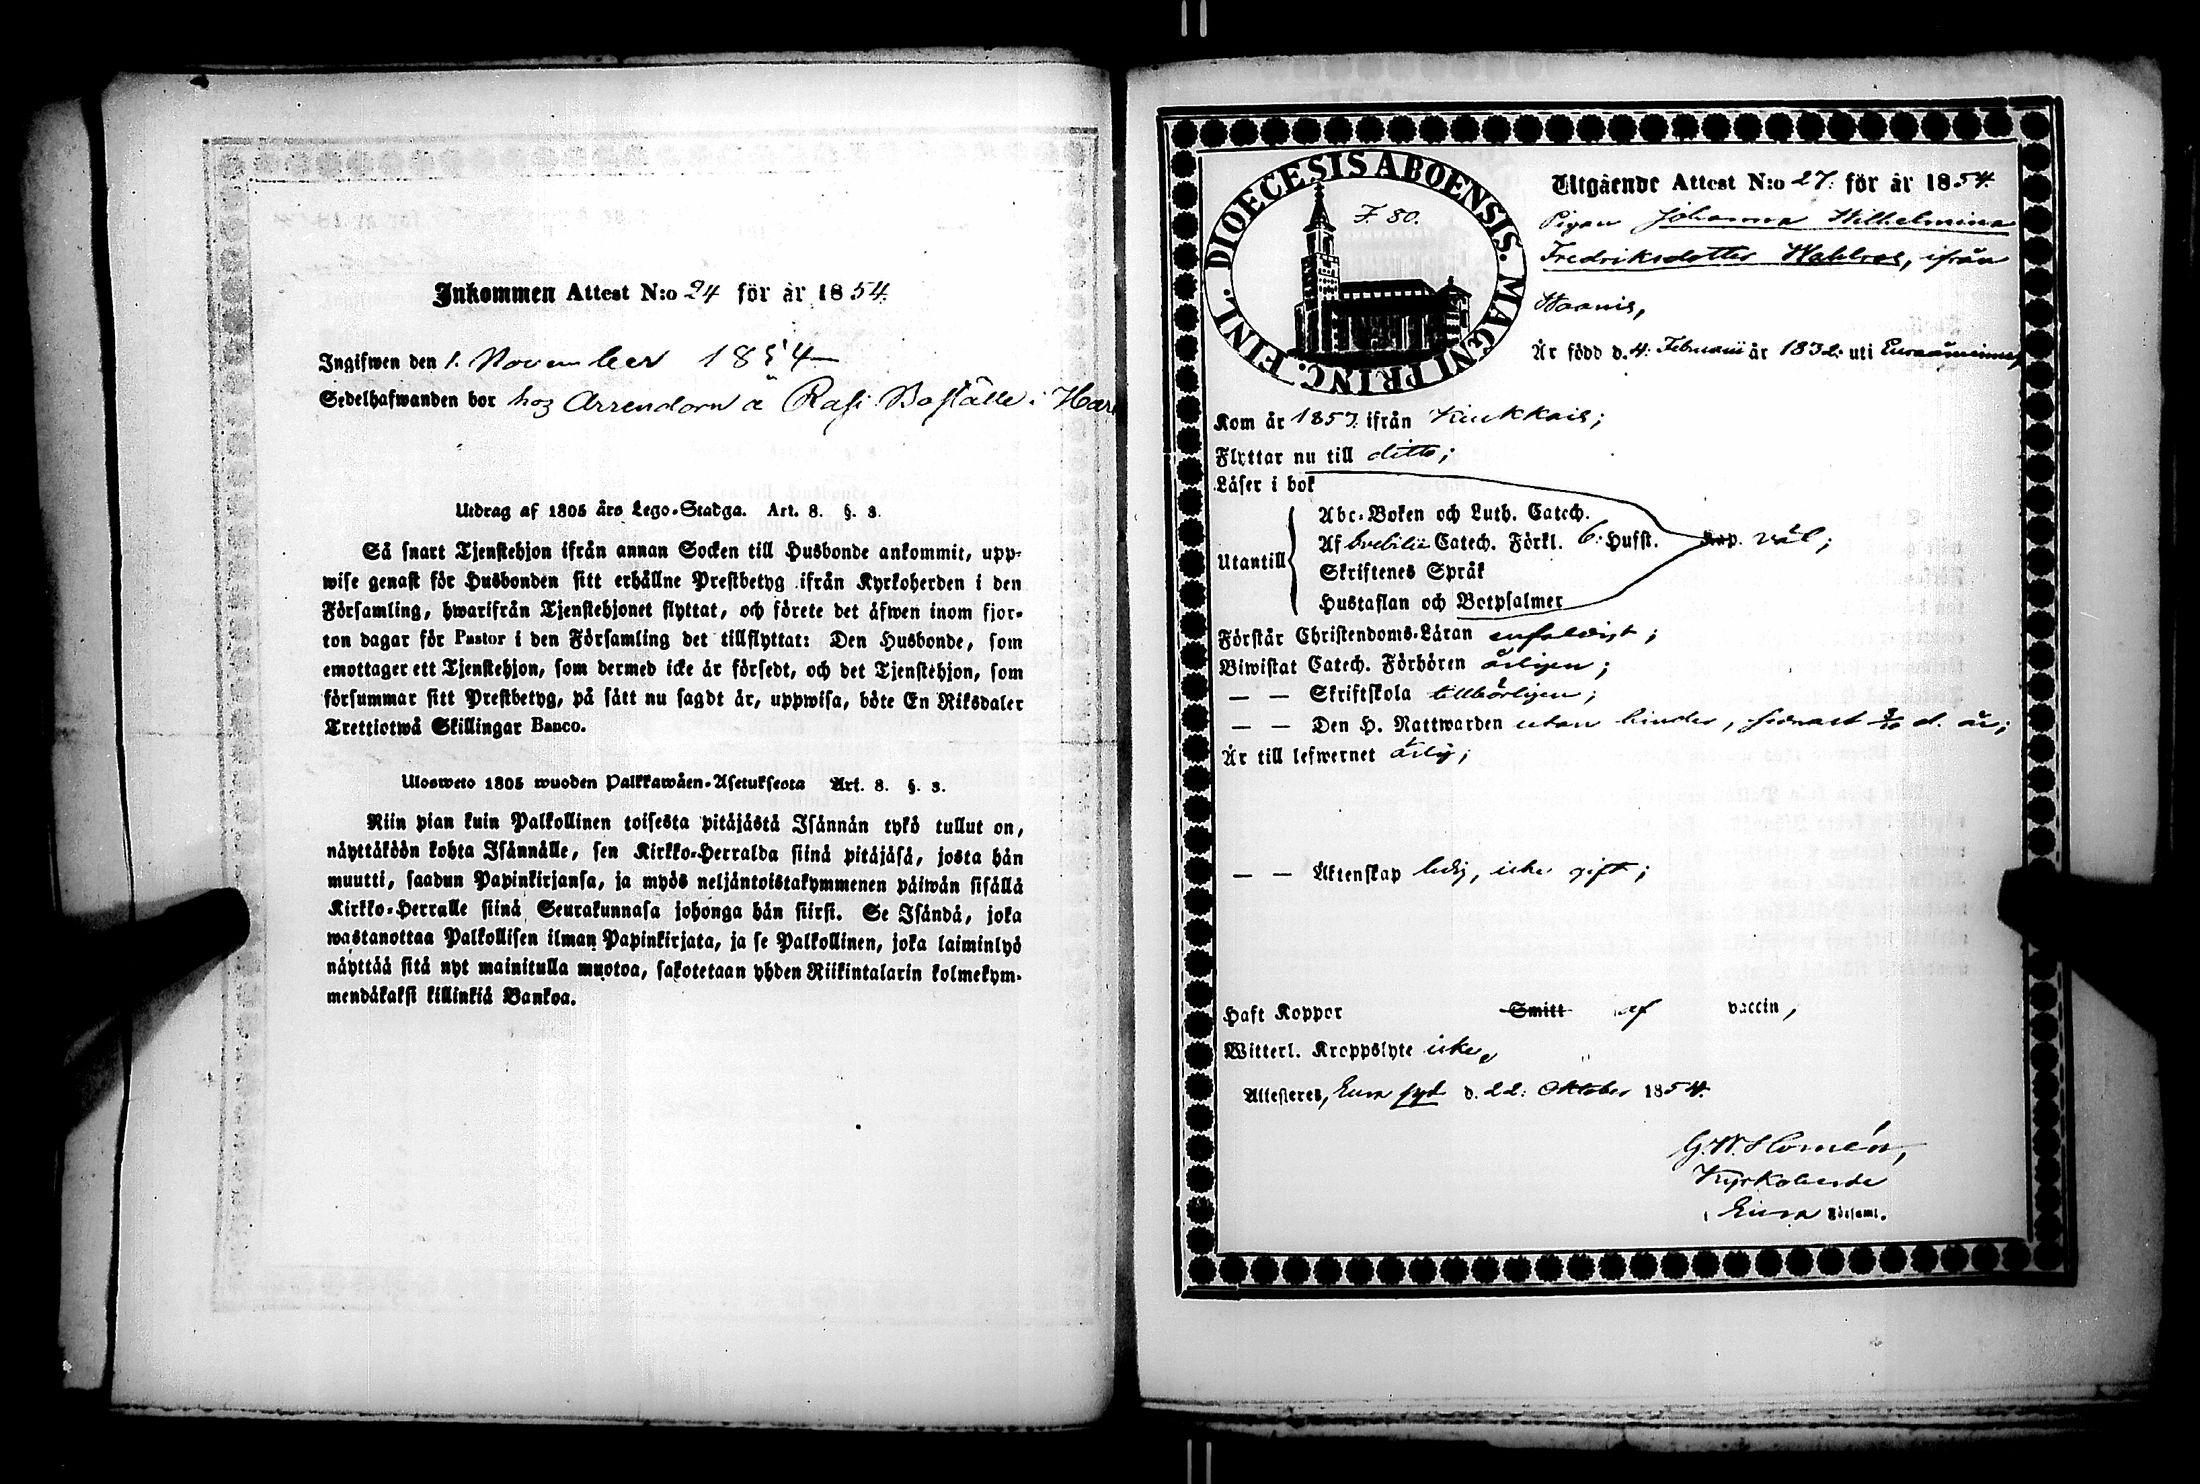 Inkommen Attest N:o 24 för år 1854.
Ingifwen den 1. November 1854
Sedelhafwanden bor hos Arrendorn å Rasi Boställe i
Utdrag af 1805 års Lego-Stadga. Art. 8. §. 3.
Så snart Tjenstehjon ifrån annan Socken till Husbonde ankommit, upp-
wise genast för Husbonden sitt erhållne Prestbetyg ifrån Kyrkoherden i den
Församling, hwarifrån Tjenstehjonet flyttat, och förete det äfwen inom fjor-
ton dagar för Pastor i den Församling det tillflyttat: Den Husbonde, som
emottager ett Tjenstehjon, som dermed icke är försedt, och det Tjenstehjon, som
försummar sitt Prestbetyg, på sätt nu sagdt är, uppwisa, böte En Riksdaler
Trettiotwå Skillingar Banco.
Ulosweto 1805 wuoden Palkkawäen-Asetuksesta Art. 8. §. 3.
Niin pian kuin Palkollinen toisesta pitäjästä Isännän tykö tullut on,
näyttäköön kohta Isännälle, sen Kirkko-Herralda siinä pitäjäsä, josta hän
muutti, saadun Papinkirjansa, ja myös neljäntoistakymmenen päiwän sisällä
Kirkko-Herralle siinä Seurakunnasa johonga hän siirsi. Se Isändä, joka
wastanottaa Palkollisen ilman Papinkirjata, ja se Palkollinen, joka laiminlyö
näyttää sitä nyt mainitulla muotoa, sakotetaan yhden Riikintalarin kolmekym-
mendäkaksi killinkiä Bankoa.
DIOECESIS ABOENSIS. MAGNI PRINC. FINL.
F. 80.
Utgående Attest N:o 27. för år 1854.
Pigan Johanna Wilhelmina
Fredriksdotter, ifrån
Är född d. 4. Februarii år 1832. uti
Kom år 1853. ifrån Kiukkais;
Flyttar nu till ditto;
Läser i bok
Utantill
Abc-Boken och Luth. Catech.
Af Svebilii Catech. Förkl. 6. Hufst. Kap. väl;
Skriftenes Språk
Hustaflan och Botpsalmer
Förstår Christendoms-Läran enfaldigt;
Biwistat Catech. Förhören årligen;
— — Skriftskola tillbörligen;
— — Den H. Nattwarden utan hinder, senast d. år;
Är till lefwernet ärlig;
— — Äktenskap ledig, icke gift;
Haft Koppor Smitt af vaccin,
Witterl. Kroppslyte icke,
Attesteres, Eura d. 22. Oktober 1854.
G. W. Homén,
Kyrkoherde
i Eura Församl.